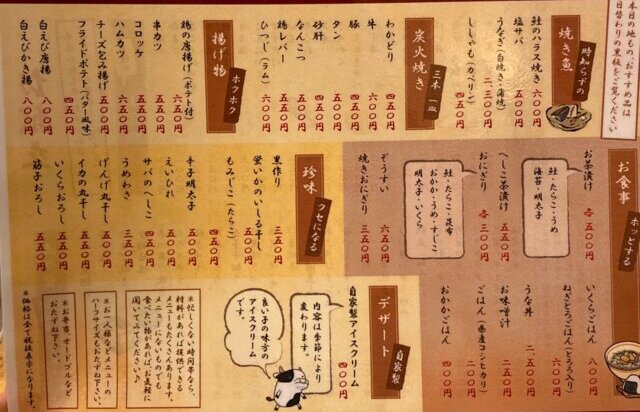 本日の地もの、おすすめ品は
日替わりの黒板をご覧ください
焼き魚
時知らずの
鮭のハラス焼き 六〇〇円
塩サバ
うなぎ(白焼き・蒲焼)
二、二三〇円
ししゃも(カペリン)
四五〇円
炭火焼き
三本一皿
わかどり 四五〇円
牛 六〇〇円
豚 四五〇円
タン 五五〇円
砂肝 四五〇円
なんこつ 五五〇円
鶏レバー 四五〇円
ひつじ(ラム) 六〇〇円
揚げ物
ホクホク
鶏の唐揚げ(ポテト付)
六五〇円
串カツ 五五〇円
コロッケ 五五〇円
ハムカツ 六五〇円
チーズ包み揚げ 五〇〇円
フライドポテト(バター風味)
四五〇円
白えび唐揚 八〇〇円
白えびかき揚 八〇〇円
お食事
ホッとする
お茶漬け 各 五五〇円
鮭・たらこ・うめ
海苔・明太子
へしこ茶漬け 五五〇円
おにぎり 各 三〇〇円
鮭・たらこ・昆布
おかか・うめ・すじこ
明太子・いくら
ぞうすい 六五〇円
焼きおにぎり 三五〇円
いくらごはん 八〇〇円
ねぎとろごはん(とろろ入り)
六〇〇円
うな丼
お味噌汁 二五〇円
ごはん(県産コシヒカリ)
二〇〇円
おかかごはん 四五〇円
珍味
クセになる
黒作り 三五〇円
蛍いかのいしる干し
五〇〇円
もみじこ(たらこ)
五五〇円
辛子明太子 五五〇円
えいひれ 五〇〇円
サバのへしこ 四五〇円
うめわさ 三五〇円
げんげ丸干し 五〇〇円
イカの丸干し 五〇〇円
いくらおろし 五五〇円
筋子おろし 五五〇円
デザート
自家製
自家製アイスクリーム
四〇〇円
内容は季節により
変わります。
良い子の味方の
アイスクリーム
です。
※忙しくない時間帯なら、
材料があれば提供できる
メニューもたくさんあります。
メニューにないものでも
食べたい物があれば、お気軽に
聞いてみてください♪
※お一人様などメニューの
ハーフサイズもお尋ね下さい。
※お弁当、オードブルなど
おたずね下さい。
※価格は全て税抜表示になります。